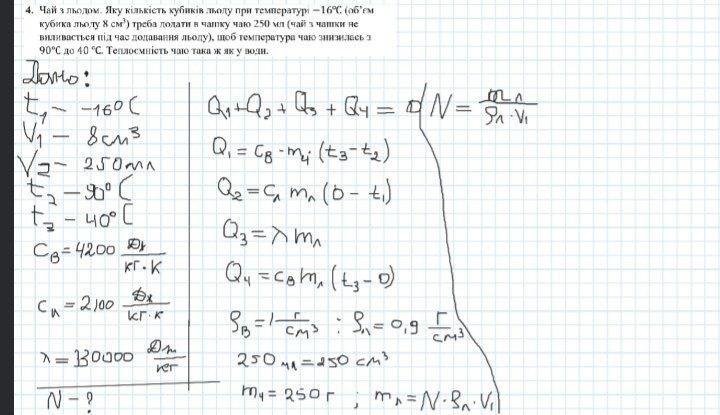 4. Чай з льодом. Яку кількість кубиків льоду при температурі −16°C (об'єм
кубика льоду 8 см³) треба додати в чашку чаю 250 мл (чай з чашки не
виливається під час додавання льоду), щоб температура чаю знизилась з
90°C до 40 °C. Теплоємність чаю така ж як у води.
Дано:
t₁ – -16°C
V₁ – 8см³
V₂ – 250мл
t₂ – 90°C
t₃ – 40°C
Cв = 4200 Дж/кг·К
Cл = 2100 Дж/кг·К
λ = 330000 Дж/кг
N - ?
Q₁ + Q₂ + Q₃ + Q₄ = 0
Q₁ = Cв · mч (t₃ – t₂)
Q₂ = Cл mл (0 – t₁)
Q₃ = λ mл
Q₄ = Cв mл (t₃ – 0)
ρв = 1 г/см³ ; ρл = 0,9 г/см³
250 мл = 250 см³
mч = 250 г ; mл = N·ρл·V₁
N = mл/ρл·V₁